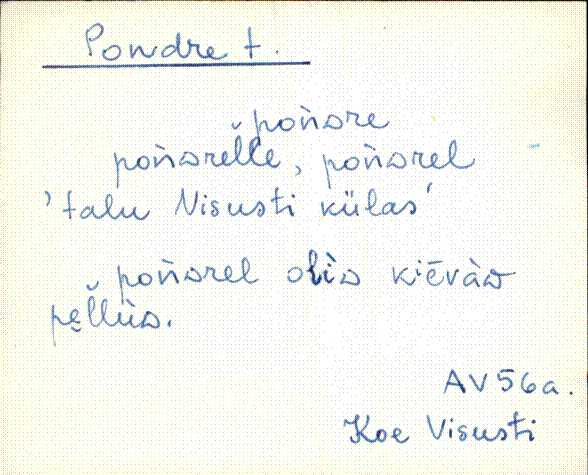 Pondre t.
poǹᴅre
poǹᴅrel̆le, poǹᴅrel
'talu Visusti külas'
poǹᴅrel olìᴅ kiēvàᴅ
pel̆lùᴅ.
AV 56a.
Koe Visusti